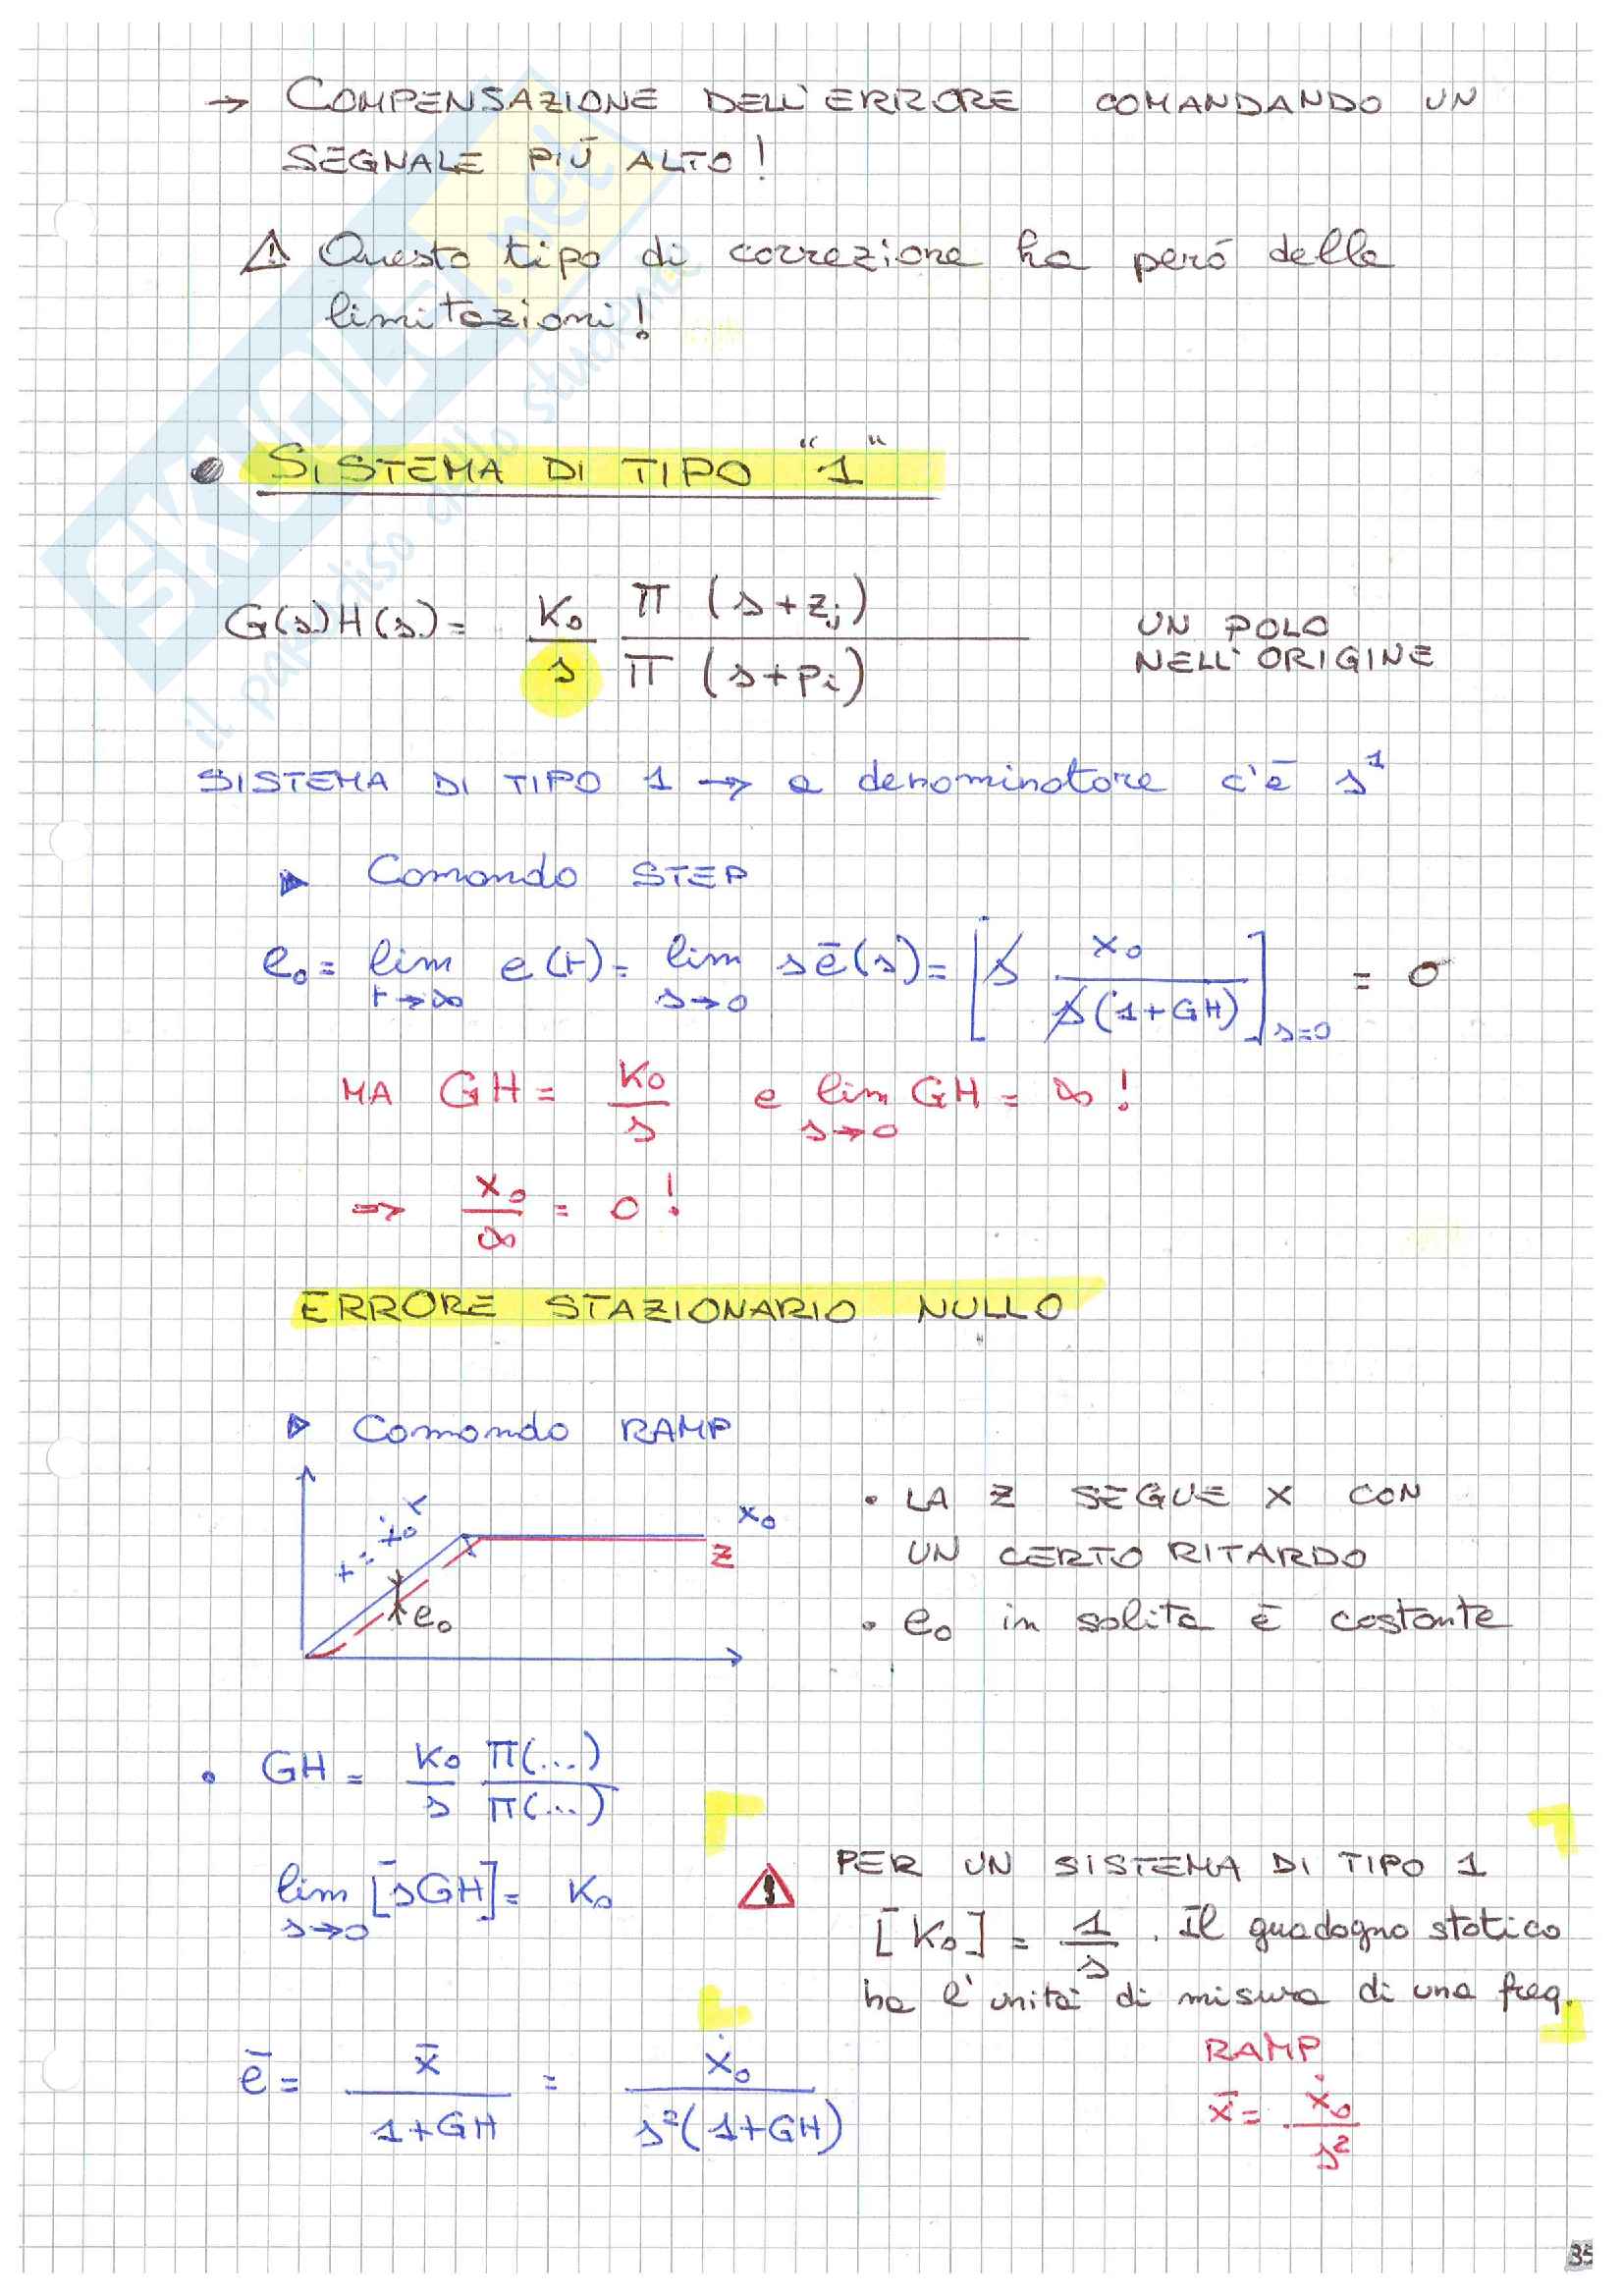 → COMPENSAZIONE DELL'ERRORE COMANDANDO UN
SEGNALE PIÙ ALTO!
⚠ Questo tipo di correzione ha però delle
limitazioni!
• SISTEMA DI TIPO "1"
G(s)H(s) = K₀/s Π(s+zⱼ)/Π(s+pᵢ)
UN POLO
NELL'ORIGINE
SISTEMA DI TIPO 1 → a denominatore c'è s¹
▶ Comando STEP
e₀ = lim t→∞ e(t) = lim s→0 s ē(s) = [s x₀/(s(1+GH))] s=0 = 0
MA GH = K₀/s e lim s→0 GH = ∞!
⇒ x₀/∞ = 0!
ERRORE STAZIONARIO NULLO
▷ Comando RAMP
x₀
z
e₀
• LA Z SEGUE X CON
UN CERTO RITARDO
• e₀ in salita è costante
• GH = K₀/s Π(...)/Π(...)
lim s→0 [sGH] = K₀
⚠ PER UN SISTEMA DI TIPO 1
[K₀] = 1/s. Il guadagno statico
ha l'unità di misura di una freq.
ē = x̄/(1+GH) = ẋ₀/(s²(1+GH))
RAMP
x̄ = ẋ₀/s²
35
SKUOLA.net
il paradiso dello studente